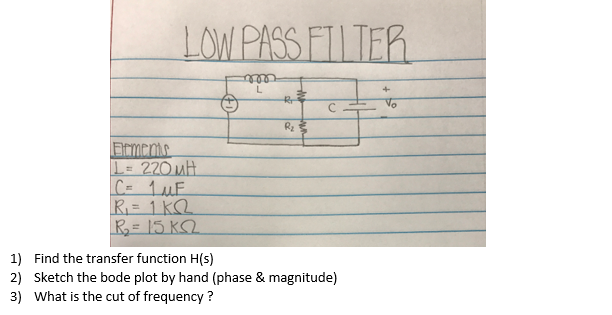 LOW PASS FILTER
L
R₁
R₂
C
+
Vo
-
Elements
L= 220 μH
C= 1 μF
R₁ = 1 KΩ
R₂ = 15 KΩ
1) Find the transfer function H(s)
2) Sketch the bode plot by hand (phase & magnitude)
3) What is the cut of frequency ?